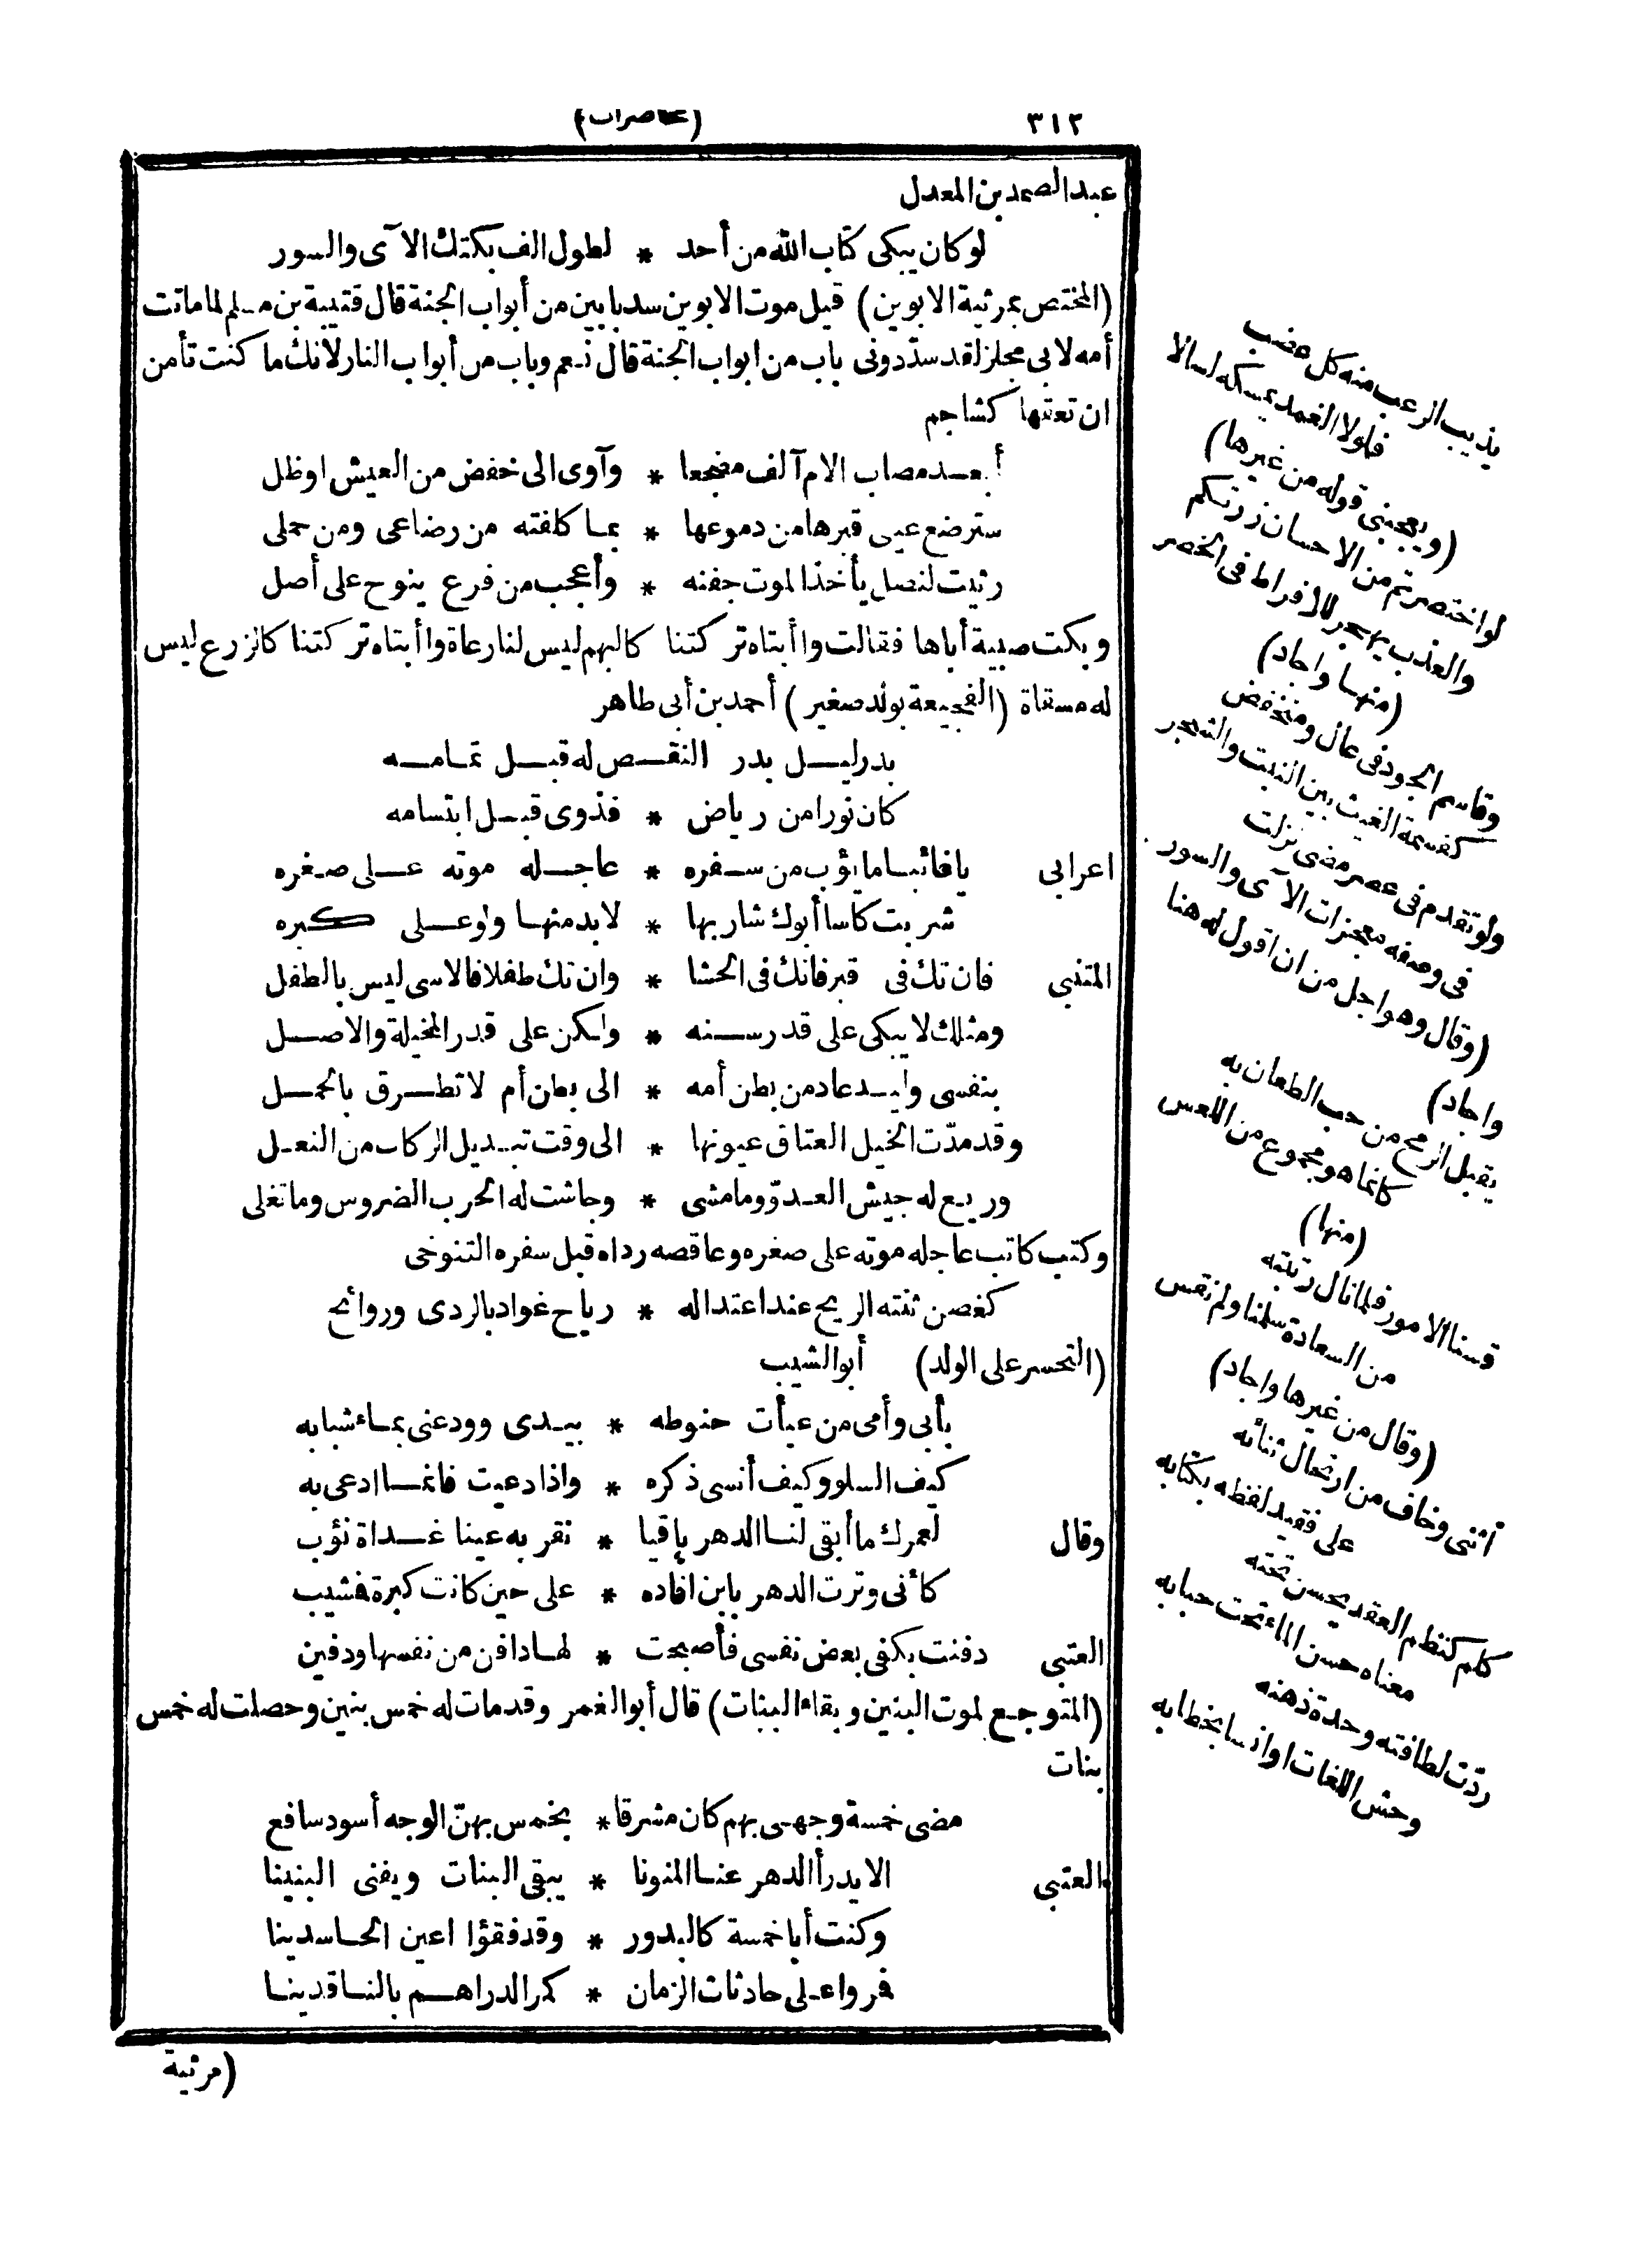 ٣١٢
(محاضرات)
عبد الصمد بن المعدل
لو كان يبكى كتاب الله من أحد * لطول الف بكتك الآى والسور
(المختص بمرثية الابوين) قيل موت الابوين سد بابين من أبواب الجنة قال قتيبة بن مسلم لما ماتت
أمه لابى مجلز لقد سدّ دونى باب من ابواب الجنة قال نعم وباب من أبواب النار لانك ما كنت تأمن
ان تعقها كشاجم
أبعد مصاب الام آلف مضجعا * وآوى الى خفض من العيش او ظل
سترضع عينى قبرها من دموعها * بما كلفته من رضاعى ومن حملى
رثيت لنصل يأخذ الموت جفنه * وأعجب من فرع ينوح على أصل
وبكت صبية أباها فقالت وا أبتاه تركتنا كالبهم ليس لنا رعاة وا أبتاه تركتنا كالزرع ليس
له مسقاة (الفجيعة بولد صغير) أحمد بن أبى طاهر
بدر ليل بدر النقص له قبل تمامه
كان نورا من رياض * فذوى قبل ابتسامه
اعرابى يا غائبا ما يؤب من سفره * عاجله موته على صغره
شربت كاسا أبوك شاربها * لا بد منها ولو على كبره
المتنبى فان تك فى قبر فانك فى الحشا * وان تك طفلا فالاسى ليس بالطفل
ومثلك لا يبكى على قدر سنه * ولكن على قدر المخيلة والاصل
بنفسى وليد عاد من بطن أمه * الى بطن أم لا تطرق بالحمل
وقد مدّت الخيل العتاق عيونها * الى وقت تبديل الركاب من النعل
وريع له جيش العدوّ وما مشى * وجاشت له الحرب الضروس وما تغلى
وكتب كاتب عاجله موته على صغره وعاقصه رداه قبل سفره التنوخى
كغصن ثنته الريح عند اعتداله * رياح غواد بالردى وروائح
(التحسر على الولد) أبو الشيب
بأبى وأمى من عبأت حنوطه * بيدى وودعنى بماء شبابه
كيف السلو وكيف أنسى ذكره * واذا دعيت فانما ادعى به
وقال لعمرك ما أبقى لنا الدهر باقيا * نقر به عينا غداة نؤب
كأنى وترت الدهر بابن افاده * على حين كانت كبرة فشيب
العتبى دفنت بكفى بعض نفسى فأصبحت * لها دافن من نفسها ودفين
(المتوجع لموت البنين وبقاء البنات) قال أبو الغمر وقد مات له خمس بنين وحصلت له خمس
بنات
مضى خمسة وجهى بهم كان مشرقا * بخمس بهنّ الوجه أسود سافع
العتبى الا يدرأ الدهر عنا المنونا * يبقى البنات ويفنى البنينا
وكنت أبا خمسة كالبدور * وقد فقؤا اعين الحاسدينا
فمروا على حادثات الزمان * كمر الدراهم بالناقدينا
(مرثية
يذيب الرعب منه كل عضب
فلولا الغمد يمسكه لسالا
(ويعجبنى قوله من غيرها)
لو اختصرتم من الاحسان زرتكم
والعذب يهجر للافراط فى الخصر
(منها واجاد)
وقاسم الجود فى عال ومنخفض
كقسمة الغيث بين النبت والشجر
ولو تقدم فى عصر مضى نزلت
فى وصفه معجزات الآى والسور
(وقال وهو اجل من ان اقول له هنا
واجاد)
يقبل الرمح من حب الطعان به
كانما هو مجموع من اللعس
(منها)
قسنا الامور فلما نال رتبته
من السعادة سلمنا ولم نقس
(وقال من غيرها واجاد)
أثنى وخاف من ارتحال ثنائه
على فقيد لفظه بكتابه
كلم كنظم العقد يحسن تحته
معناه حسن الماء تحت حبابه
ردّت لطافته وحدة ذهنه
وحش اللغات اوانسا بخطابه